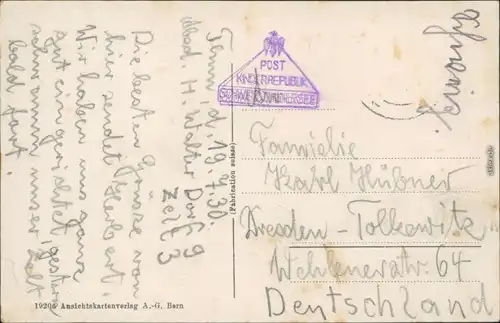 Thun, d. 19.7.30.
Abs. H. Walter Dorf 9
Zelt 3
Die besten Grüsse von
hier sendet Herbert.
Wir haben uns ganz
gut eingerichtet, gestern
schwamm unser Zelt
bald fort.
POST
KINDERREPUBLIK
Familie
Karl Hübner
Dresden - Tolkewitz
Wehlenerstr. 64
Deutschland
(Fabrication suisse)
Ansichtskartenverlag A.-G. Bern